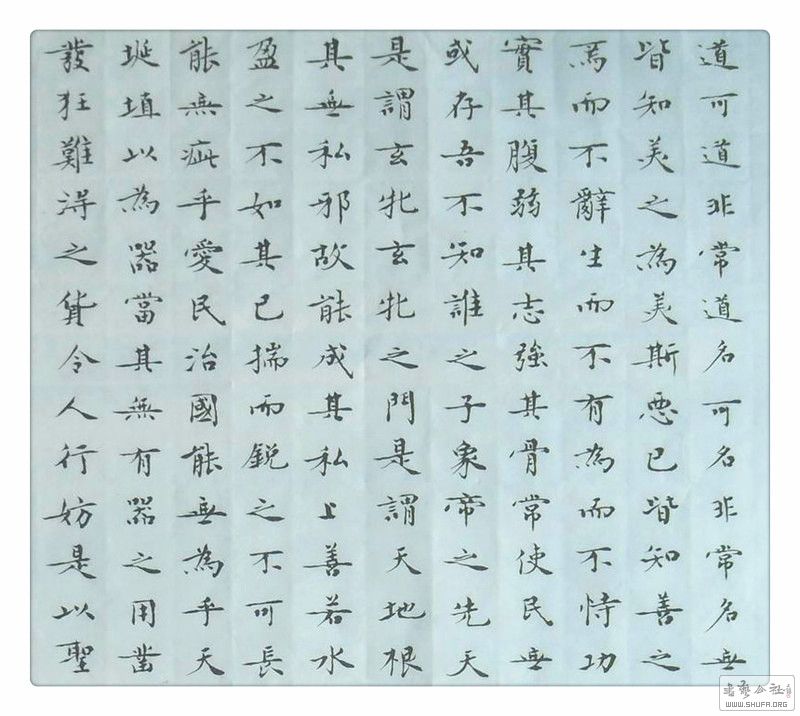 道可道非常道名可名非常名無
皆知美之為美斯惡已皆知善之
焉而不辭生而不有為而不恃功
實其腹弱其志強其骨常使民無
或存吾不知誰之子象帝之先天
是謂玄牝玄牝之門是謂天地根
其無私邪故能成其私上善若水
盈之不如其已揣而銳之不可長
能無疵乎愛民治國能無為乎天
埏埴以為器當其無有器之用鑿
發狂難得之貨令人行妨是以聖
WWW.SHUFA.ORG